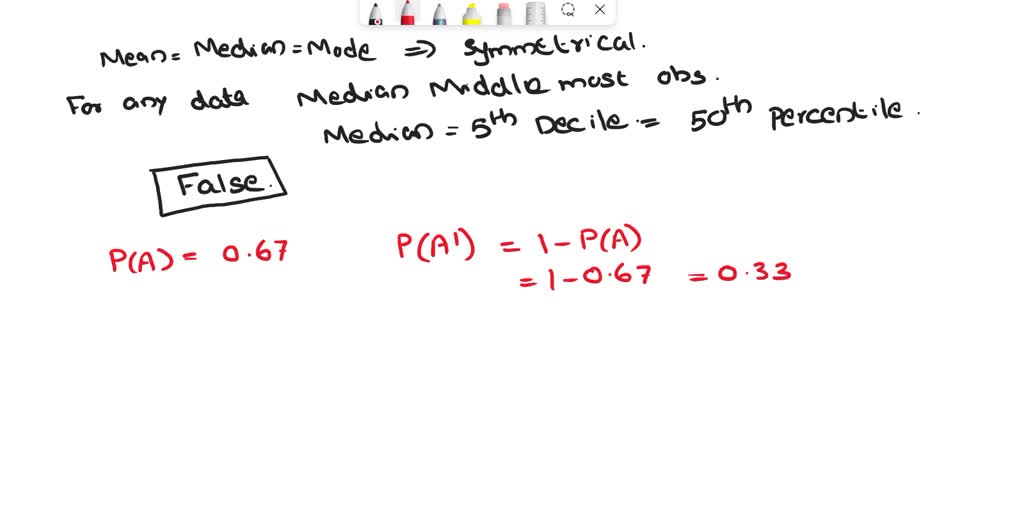 Mean = Median = Mode ⇒ Symmetrical.
For any data Median Middle most obs.
Median = 5th Decile = 50th Percentile.
False.
P(A) = 0.67 P(A') = 1 - P(A)
= 1 - 0.67 = 0.33